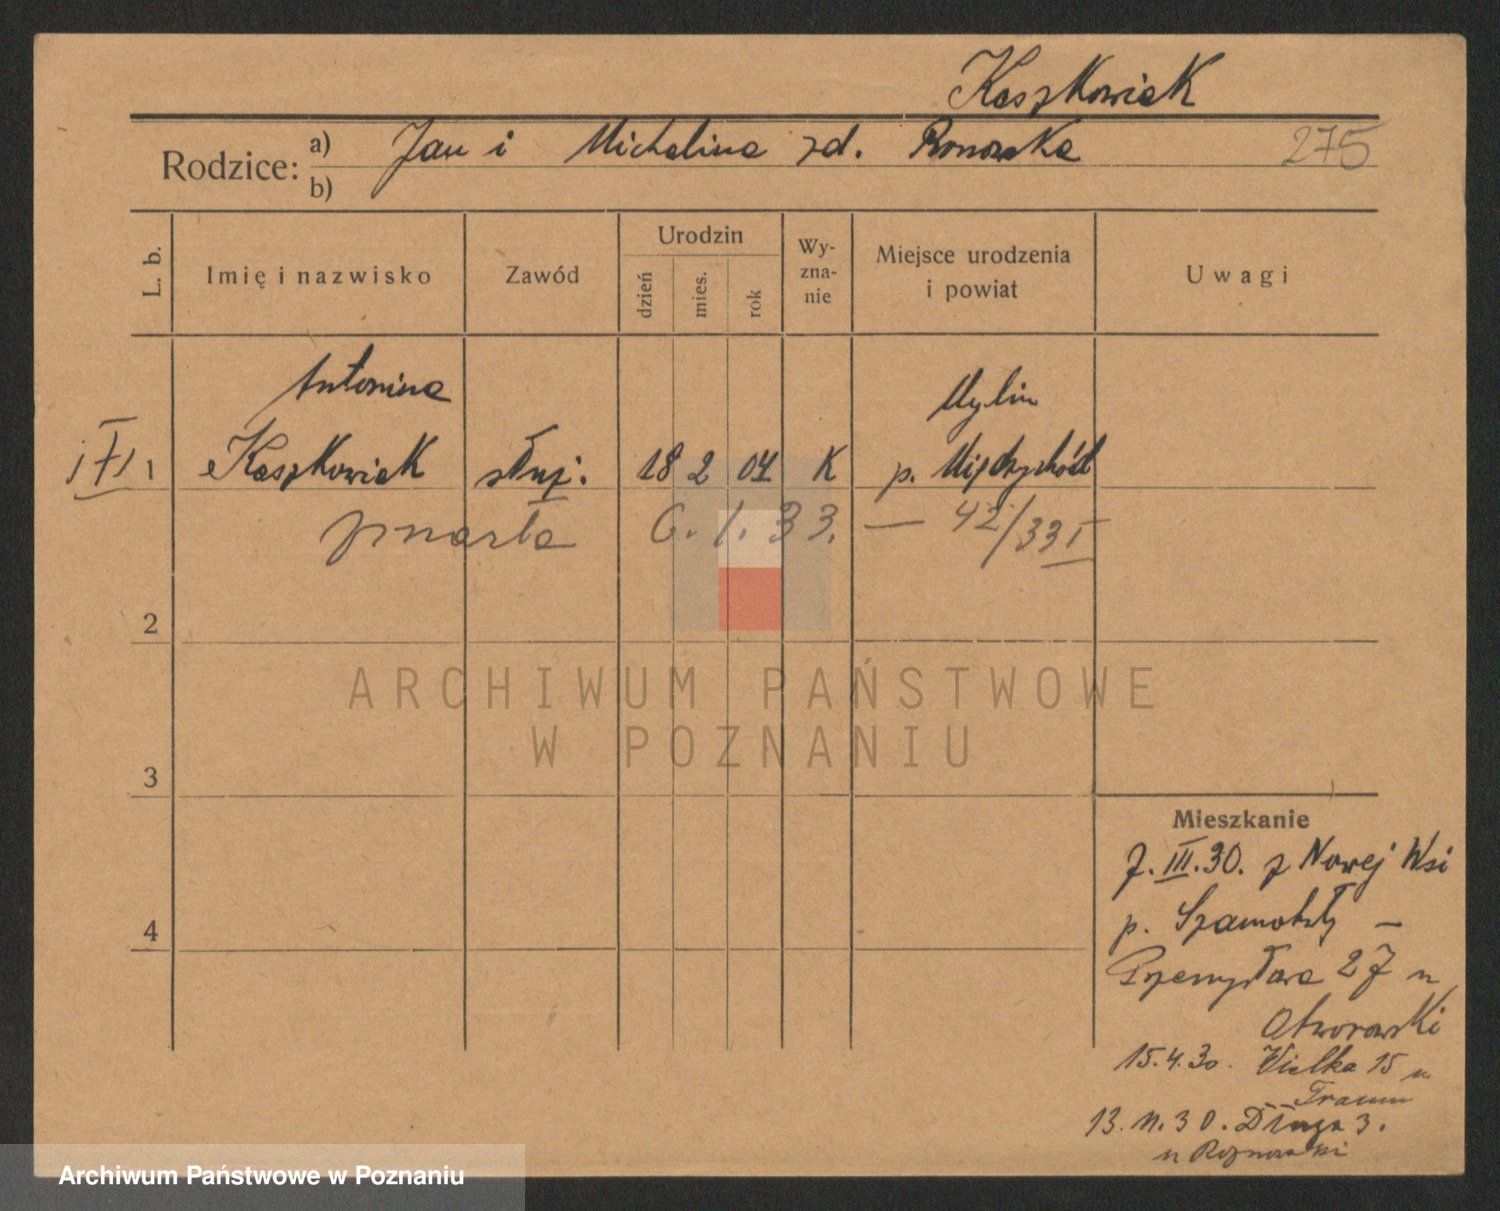 Kaszkowiak
Rodzice:
a) Jan i Michalina zd.
275
b)
L. b.
Imię i nazwisko
Zawód
Urodzin
dzień
mies.
rok
Wy-
zna-
nie
Miejsce urodzenia
i powiat
Uwagi
Antonina
Mylin
1 Kaszkowiak służ. 18 2 04 K p. Międzychód
zmarła 6. 1. 33. — 42/33 I
2
ARCHIWUM PAŃSTWOWE
W POZNANIU
3
4
Mieszkanie
7. III. 30. z Nowej Wsi
p. Szamotuły —
Przemysława 27 u
Otworowski
15.4.30. Wielka 15 u
13. 11. 30. Długa 3.
u
Archiwum Państwowe w Poznaniu